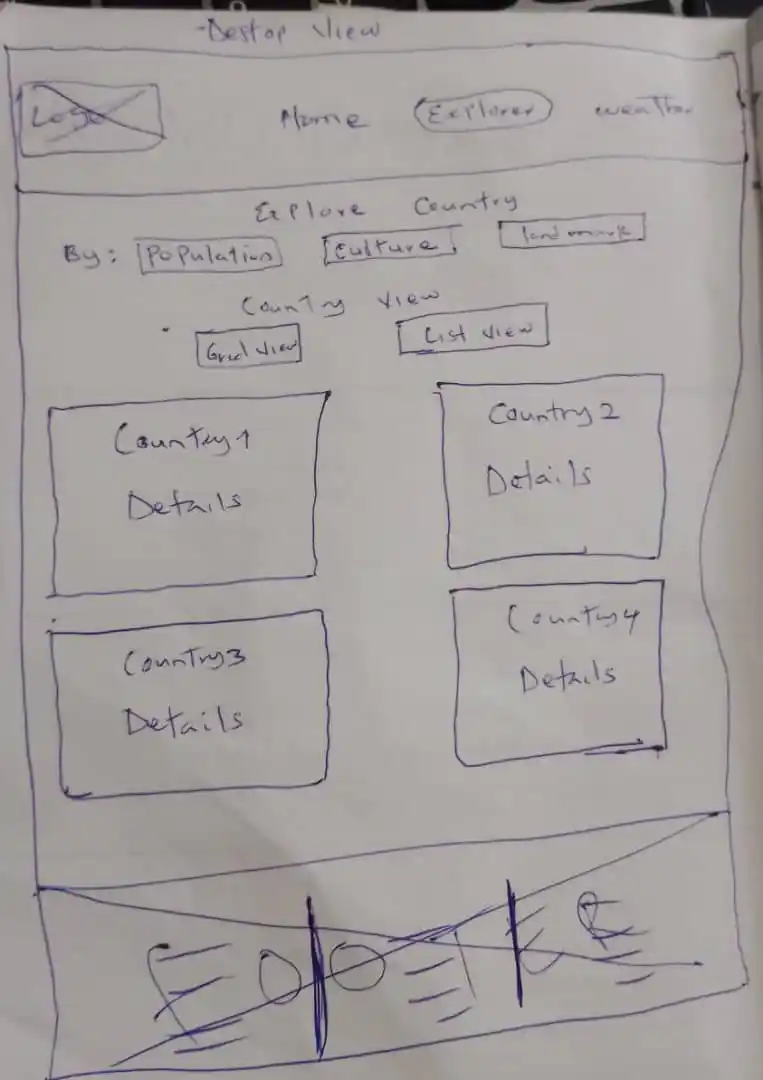 Destop View
Logo Home Explorer weather
Explore Country
By: Population Culture landmark
Country View
Grid View List View
Country1 Country2
Details Details
Country3 Country4
Details Details
FOOTER